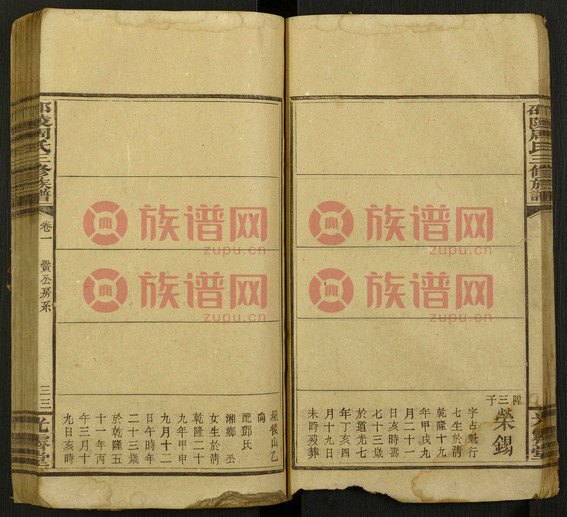 邵陵周氏三修族谱
陞三子
榮錫
字占魁行
七生於清
乾隆十九
年甲戌九
月二十一
日亥時壽
七十三歲
於道光七
年丁亥四
月十九日
未時歿葬
山乙
向
配鄧氏
湘鄉丞
女生於清
乾隆二十
九年甲申
九月十二
日午時年
二十三歲
於乾隆五
十一年丙
午三月十
九日亥時
邵陵周氏三修族譜
卷一
房系
三三
光霽堂
族谱网
zupu.cn
族谱网
zupu.cn
族谱网
zupu.cn
族谱网
zupu.cn